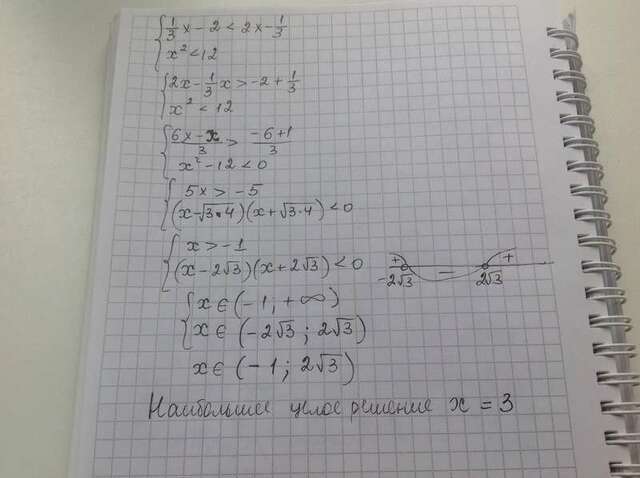 { 1/3 x - 2 < 2x - 1/3
x² < 12
{ 2x - 1/3 x > -2 + 1/3
x² < 12
{ (6x - x)/3 > (-6+1)/3
x² - 12 < 0
{ 5x > -5
(x - √3·4)(x + √3·4) < 0
{ x > -1
(x - 2√3)(x + 2√3) < 0
+ − +
-2√3 2√3
{ x ∈ (-1; +∞)
x ∈ (-2√3; 2√3)
x ∈ (-1; 2√3)
Наибольшее целое решение x = 3